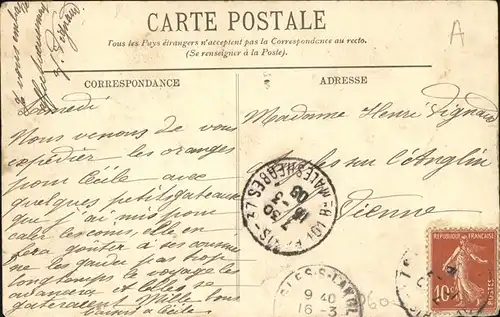 CARTE POSTALE
Tous les Pays étrangers n'acceptent pas la Correspondance au recto.
(Se renseigner à la Poste).
A
CORRESPONDANCE
ADRESSE
Samedi
Nous venons de vous
expédier les oranges
pour Cécile avec
quelques petits gateaux
que j'ai mis pour
caler les coins, elle en
fera goûter à ses
ne les gardez pas trop
longtemps le voyage les
avancera et elles se
gateraient Mille bons
baisers à Cécile
Je vous embrasse
Madame Henri Vignaud
Angles sur l'Anglin
Vienne
MALESHERBES
PARIS
9 40
16-3
RÉPUBLIQUE FRANÇAISE
10c
60